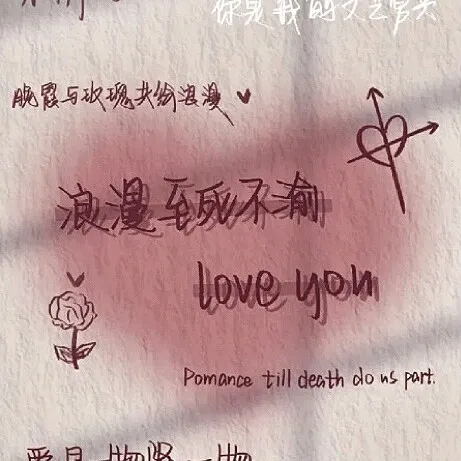 你是我的文艺宫宍
晚霞与玫瑰共绘浪漫
浪漫至死不渝
love you
Pomance till death do us part.